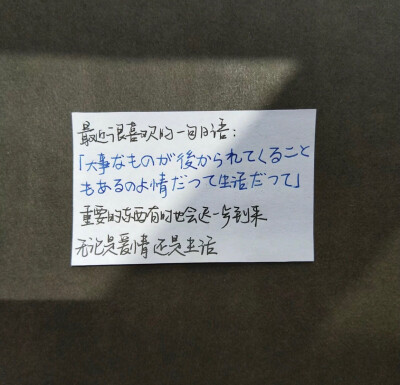 最近很喜欢的一句日语：
「大事なものが後かられてくること
もあるのよ情だって生活だって」
重要的东西有时也会迟一步到来
无论是爱情还是生活